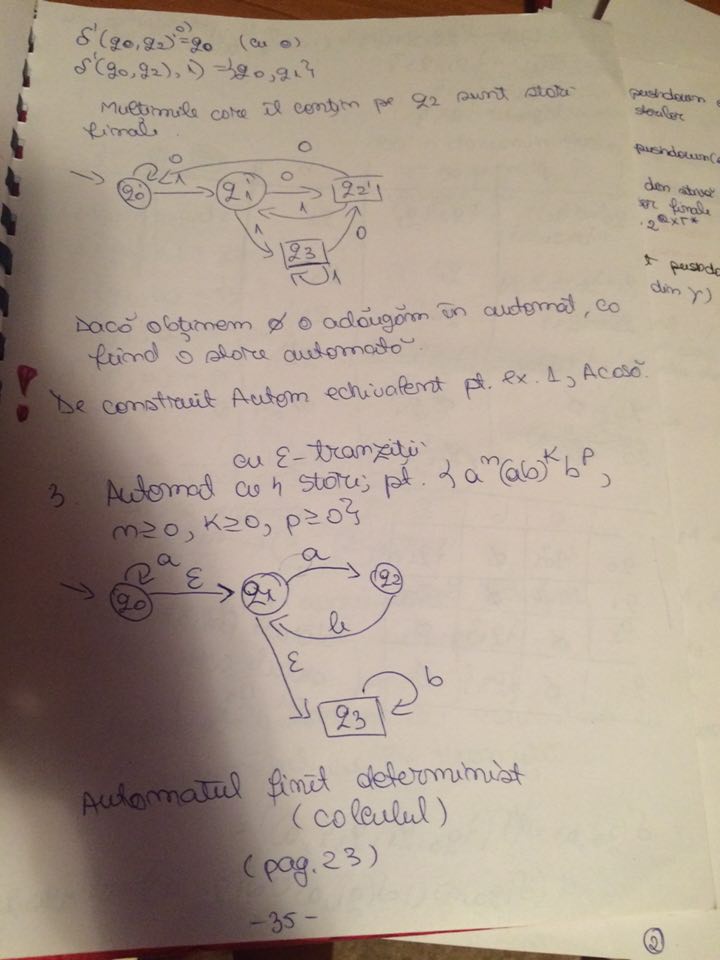 δ'(q0,q2),0)=q0 (cu 0)
δ'(q0,q2),1)={q0,q1}
Mulțimile care îl conțin pe q2 sunt stări
finale.
0
0
q0'
1
q1'
0
q2'
1
1
0
q3
1
Dacă obținem ∅ o adăugăm în automat, ca
fiind o stare automată.
! De construit Autom echivalent pt. ex. 1, Acasă.
cu ε-tranziții
3. Automat cu 4 stări; pt. {a^n(ab)^k b^p,
n≥0, k≥0, p≥0}
a
ε
a
q0
q1
q2
b
ε
b
q3
Automatul finit determinist
(calculul)
(pag.23)
-35-
2
pushdown
stărilor
pushdown
din
finale
pushdo
din γ)